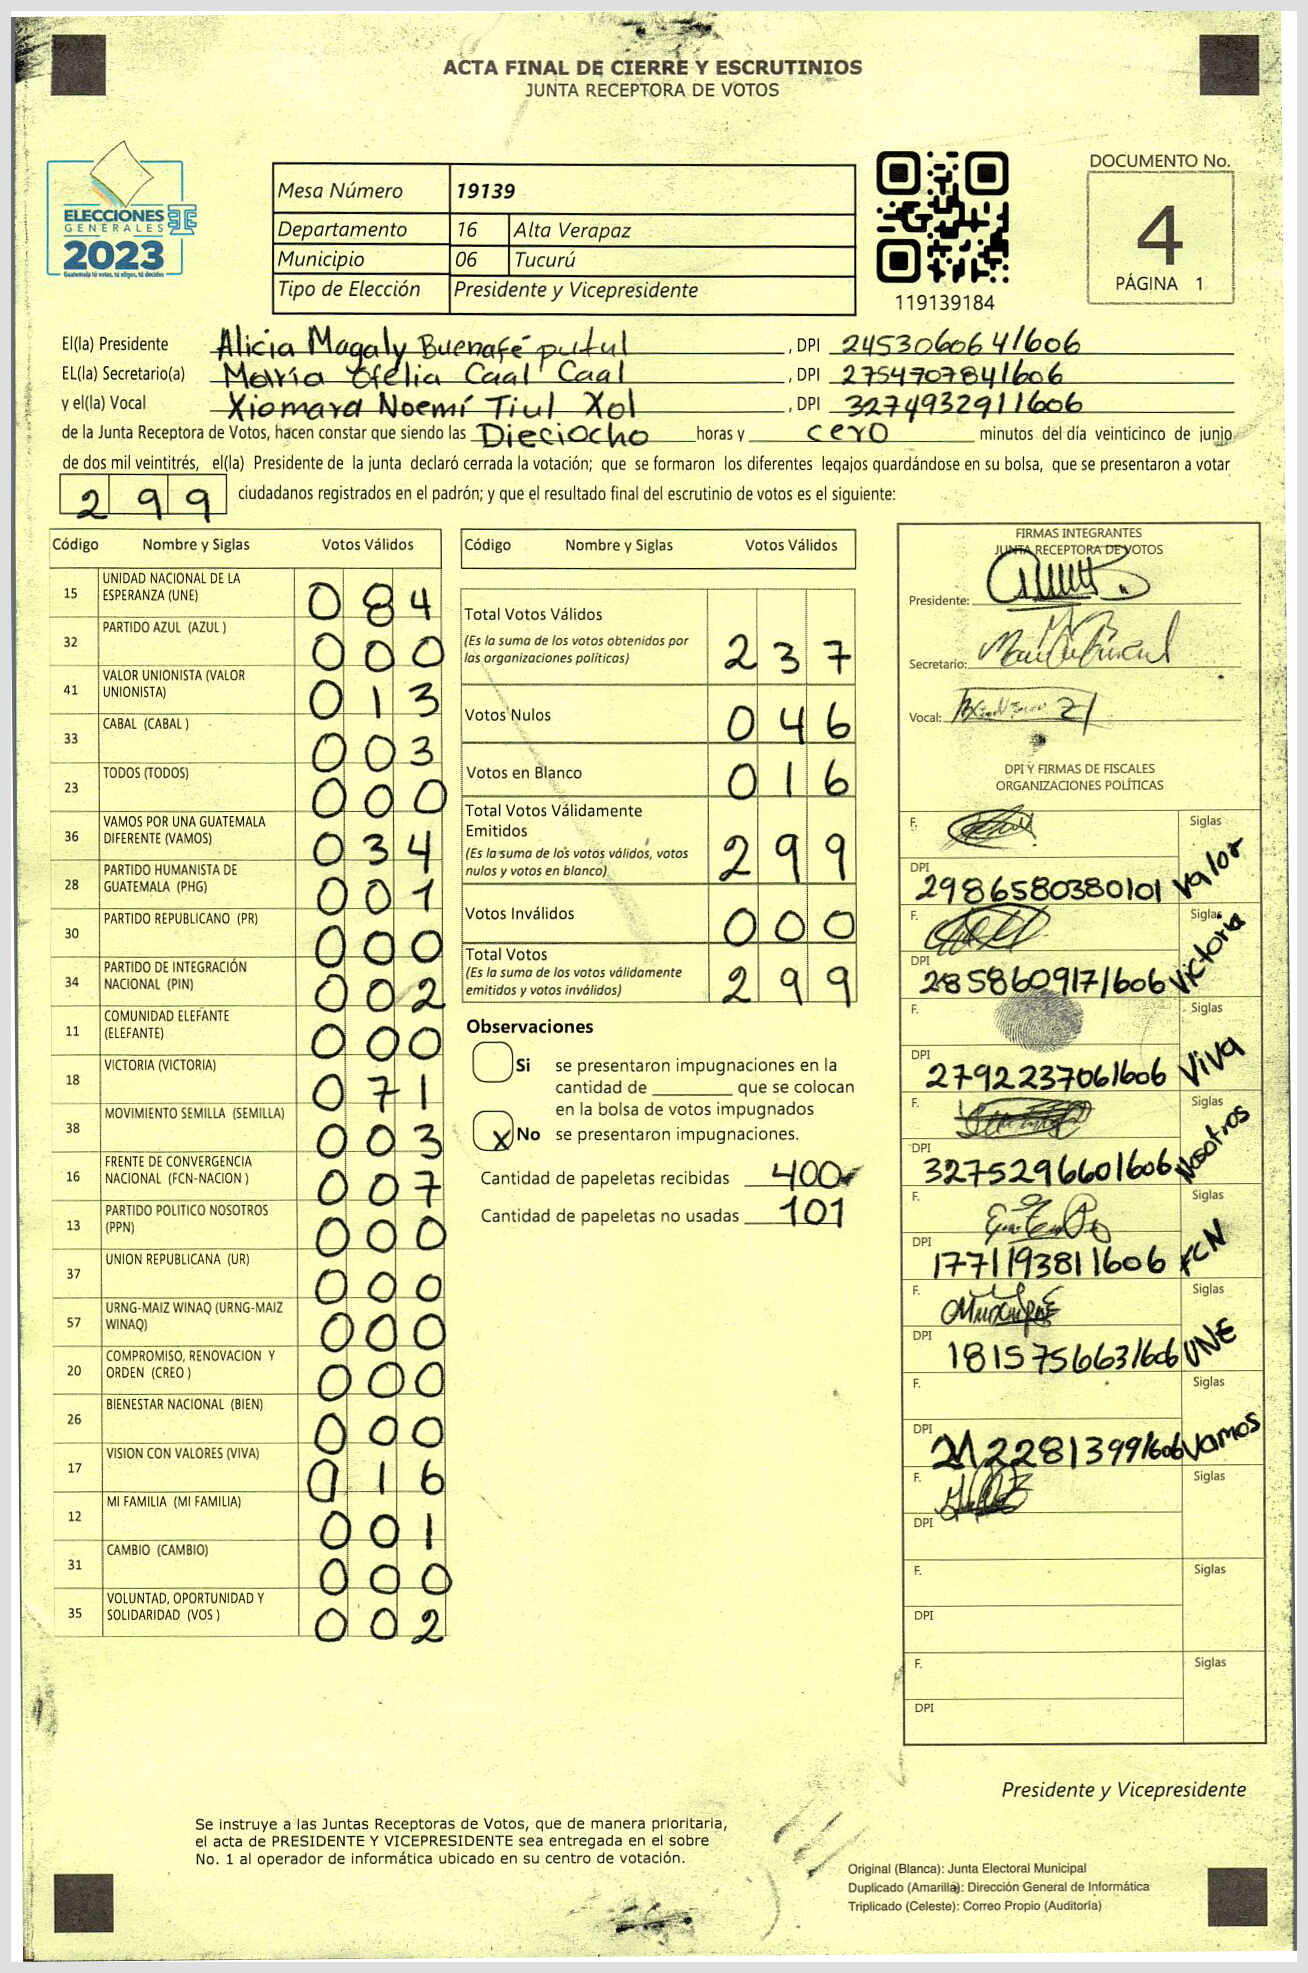 ACTA FINAL DE CIERRE Y ESCRUTINIOS
JUNTA RECEPTORA DE VOTOS
ELECCIONES
GENERALES
2023
Guatemala tú votas, tú eliges, tú decides
Mesa Número 19139
Departamento 16 Alta Verapaz
Municipio 06 Tucurú
Tipo de Elección Presidente y Vicepresidente
119139184
DOCUMENTO No.
4
PÁGINA 1
El(la) Presidente Alicia Magaly Buenafé putul, DPI 2453060641606
EL(la) Secretario(a) María Ofelia Caal Caal, DPI 2754707841606
y el(la) Vocal Xiomara Noemí Tiul Xol, DPI 3274932911606
de la Junta Receptora de Votos, hacen constar que siendo las Dieciocho horas y cero minutos del día veinticinco de junio
de dos mil veintitrés, el(la) Presidente de la junta declaró cerrada la votación; que se formaron los diferentes legajos guardándose en su bolsa, que se presentaron a votar
299 ciudadanos registrados en el padrón; y que el resultado final del escrutinio de votos es el siguiente:
Código Nombre y Siglas Votos Válidos
15 UNIDAD NACIONAL DE LA
ESPERANZA (UNE) 084
32 PARTIDO AZUL (AZUL ) 000
41 VALOR UNIONISTA (VALOR
UNIONISTA) 013
33 CABAL (CABAL ) 003
23 TODOS (TODOS) 000
36 VAMOS POR UNA GUATEMALA
DIFERENTE (VAMOS) 034
28 PARTIDO HUMANISTA DE
GUATEMALA (PHG) 001
30 PARTIDO REPUBLICANO (PR) 000
34 PARTIDO DE INTEGRACIÓN
NACIONAL (PIN) 002
11 COMUNIDAD ELEFANTE
(ELEFANTE) 000
18 VICTORIA (VICTORIA) 071
38 MOVIMIENTO SEMILLA (SEMILLA) 003
16 FRENTE DE CONVERGENCIA
NACIONAL (FCN-NACION ) 007
13 PARTIDO POLITICO NOSOTROS
(PPN) 000
37 UNION REPUBLICANA (UR) 000
57 URNG-MAIZ WINAQ (URNG-MAIZ
WINAQ) 000
20 COMPROMISO, RENOVACION Y
ORDEN (CREO ) 000
26 BIENESTAR NACIONAL (BIEN) 000
17 VISION CON VALORES (VIVA) 016
12 MI FAMILIA (MI FAMILIA) 001
31 CAMBIO (CAMBIO) 000
35 VOLUNTAD, OPORTUNIDAD Y
SOLIDARIDAD (VOS ) 002
Código Nombre y Siglas Votos Válidos
Total Votos Válidos
(Es la suma de los votos obtenidos por
las organizaciones políticas) 237
Votos Nulos 046
Votos en Blanco 016
Total Votos Válidamente
Emitidos
(Es la suma de los votos válidos, votos
nulos y votos en blanco) 299
Votos Inválidos 000
Total Votos
(Es la suma de los votos válidamente
emitidos y votos inválidos) 299
Observaciones
Si se presentaron impugnaciones en la
cantidad de ________ que se colocan
en la bolsa de votos impugnados
X No se presentaron impugnaciones.
Cantidad de papeletas recibidas 400
Cantidad de papeletas no usadas 101
FIRMAS INTEGRANTES
JUNTA RECEPTORA DE VOTOS
Presidente:
Secretario:
Vocal:
DPI Y FIRMAS DE FISCALES
ORGANIZACIONES POLÍTICAS
F. Siglas
DPI 2986580380101 Valor
F. Siglas
DPI 2858609171606 Victoria
F. Siglas
DPI 2792237061606 Viva
F. Siglas
DPI 3275296601606 Nosotros
F. Siglas
DPI 1771193811606 FCN
F. Siglas
DPI 1815756631606 UNE
F. Siglas
DPI Vamos
F. Siglas
DPI
F. Siglas
DPI
F. Siglas
DPI
Presidente y Vicepresidente
Se instruye a las Juntas Receptoras de Votos, que de manera prioritaria,
el acta de PRESIDENTE Y VICEPRESIDENTE sea entregada en el sobre
No. 1 al operador de informática ubicado en su centro de votación.
Original (Blanca): Junta Electoral Municipal
Duplicado (Amarilla): Dirección General de Informática
Triplicado (Celeste): Correo Propio (Auditoría)